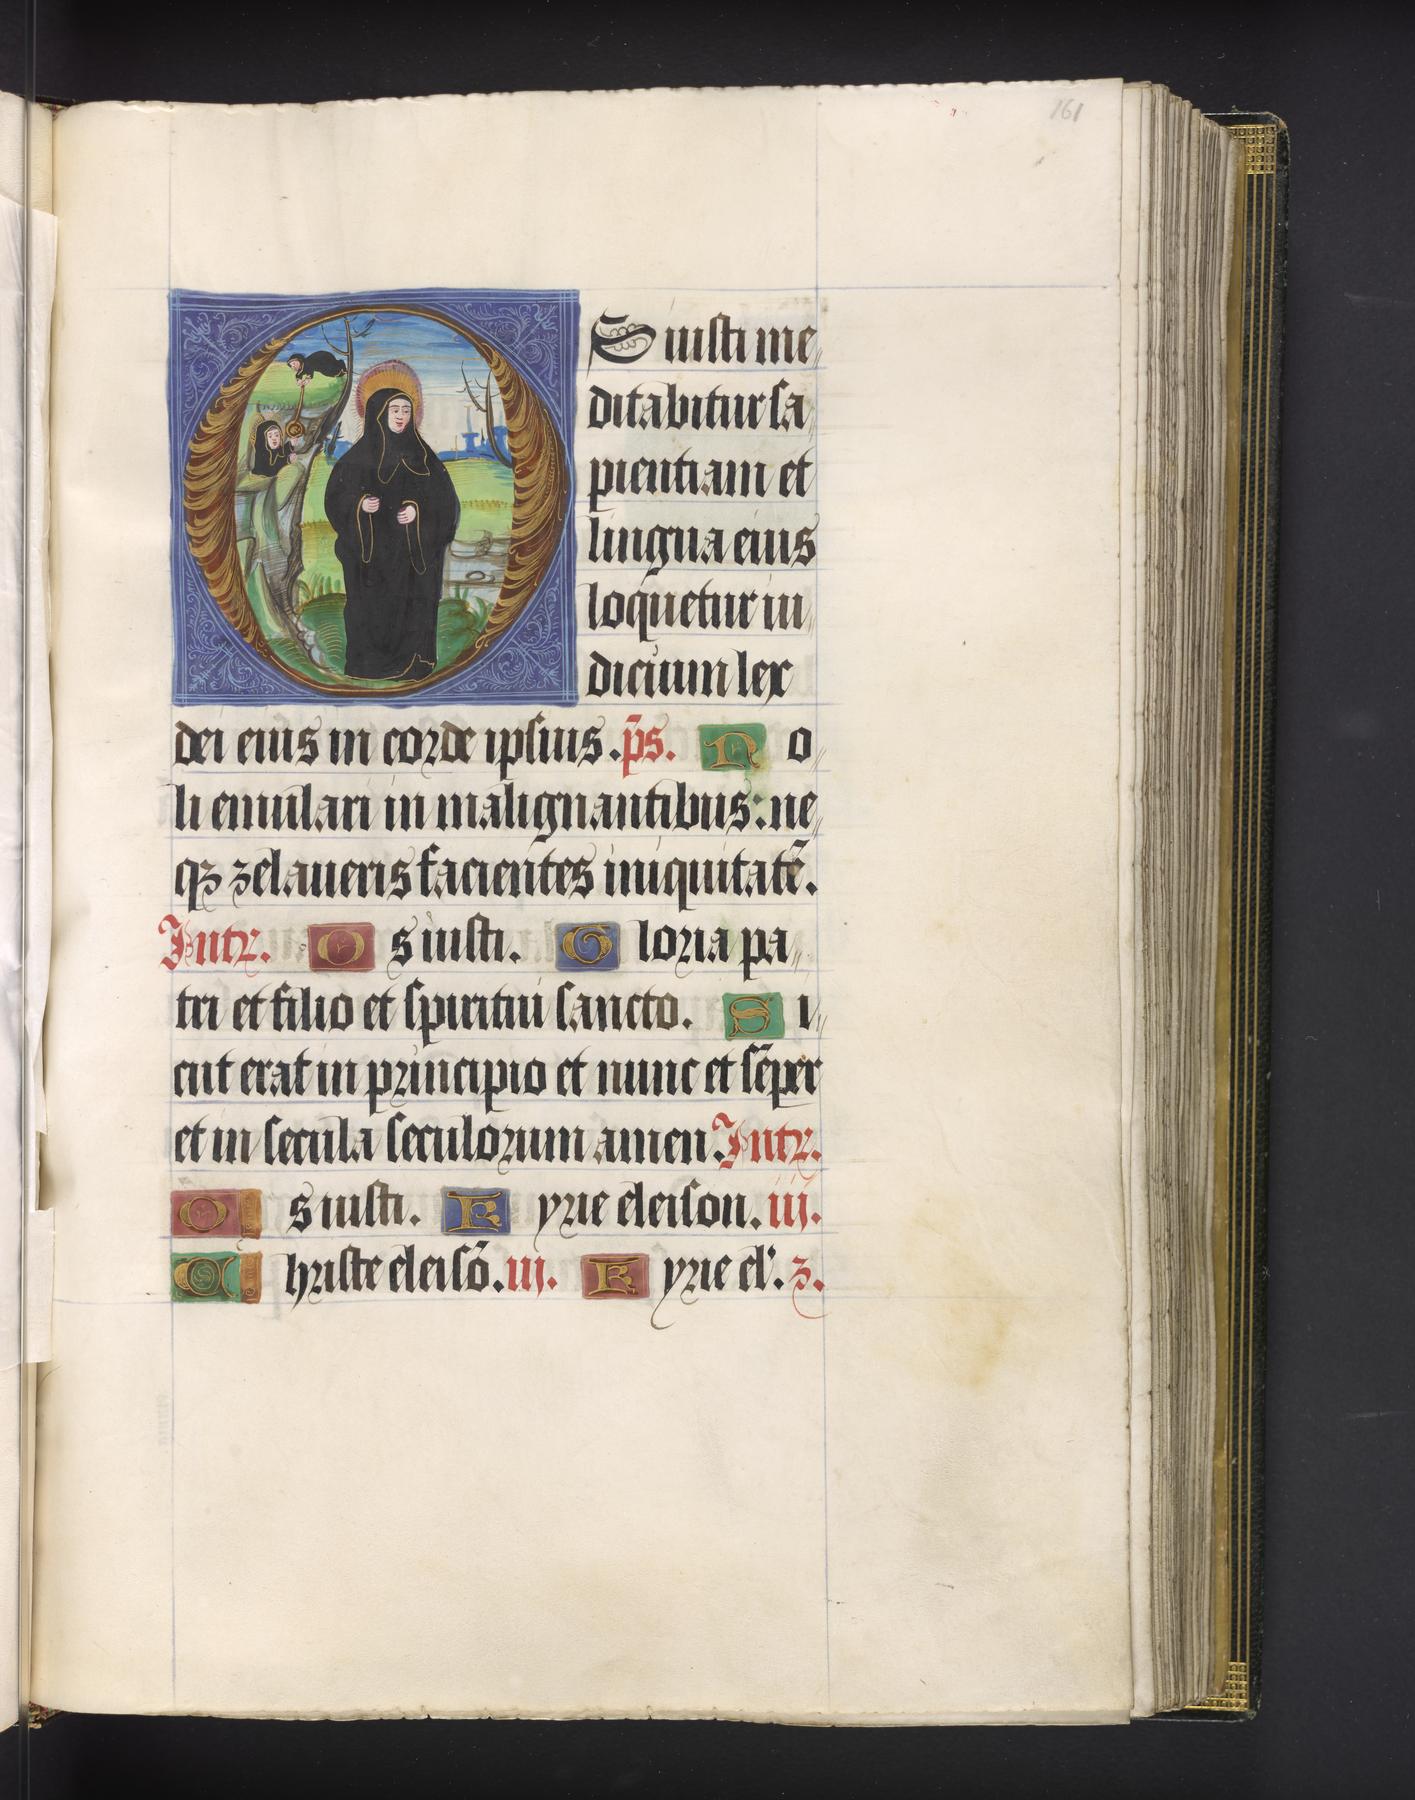 161
OS iusti me
ditabitur sa
pientiam et
lingua eius
loquetur iu
dicium lex
dei eius in corde ipsius. p̄s. No
li emulari in malignantibus: ne
qꝫ zelaueris facientes iniquitatē.
Intr. Os iusti. Gloria pa
tri et filio et spiritui sancto. Si
cut erat in principio et nunc et sēper
et in secula seculorum amen. Intr.
Os iusti. Kyrie eleison. iij.
Christe eleisō. iij. Kyrie el'. 3.